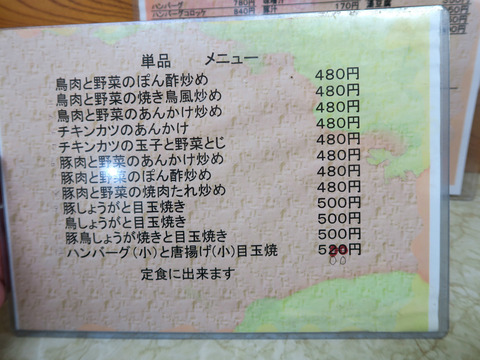 ハンバーグ 780円
ハンバーグコロッケ 840円
170円 湯豆腐
単品 メニュー
鳥肉と野菜のぽん酢炒め 480円
鳥肉と野菜の焼き鳥風炒め 480円
鳥肉と野菜のあんかけ炒め 480円
チキンカツのあんかけ 480円
チキンカツの玉子と野菜とじ 480円
豚肉と野菜のあんかけ炒め 480円
豚肉と野菜のぽん酢炒め 480円
豚肉と野菜の焼肉たれ炒め 480円
豚しょうがと目玉焼き 500円
鳥しょうがと目玉焼き 500円
豚鳥しょうが焼きと目玉焼き 500円
ハンバーグ(小)と唐揚げ(小)目玉焼 520円
00
定食に出来ます